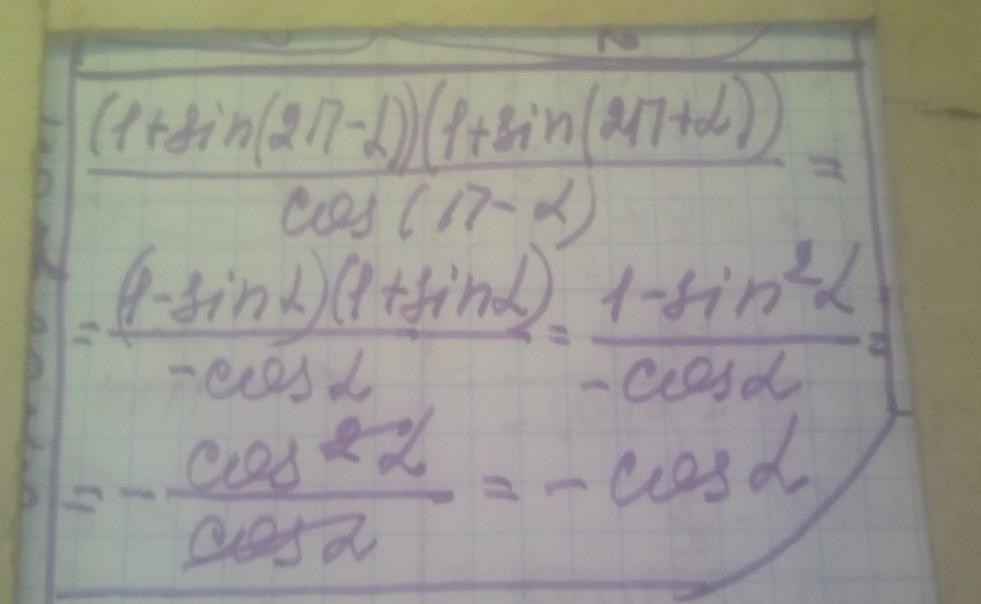 (1+sin(2π-α))(1+sin(2π+α)) / cos(π-α) =
= (1-sinα)(1+sinα) / -cosα = 1-sin²α / -cosα =
= - cos²α / cosα = - cosα